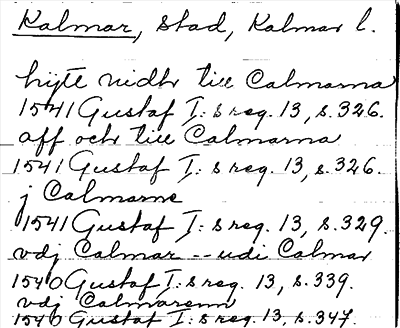 Kalmar, stad, Kalmar l.
hijte nidhr till Calmarna
1541 Gustaf I:s reg. 13, s. 326.
aff och till Calmarna
1541 Gustaf I:s reg. 13, s. 326.
j Calmarne
1541 Gustaf I:s reg. 13, s. 329.
vdj Calmar -- udi Calmar
1540 Gustaf I:s reg. 13, s. 339.
vdj Calmarenn
1540 Gustaf I:s reg. 13, s. 347.